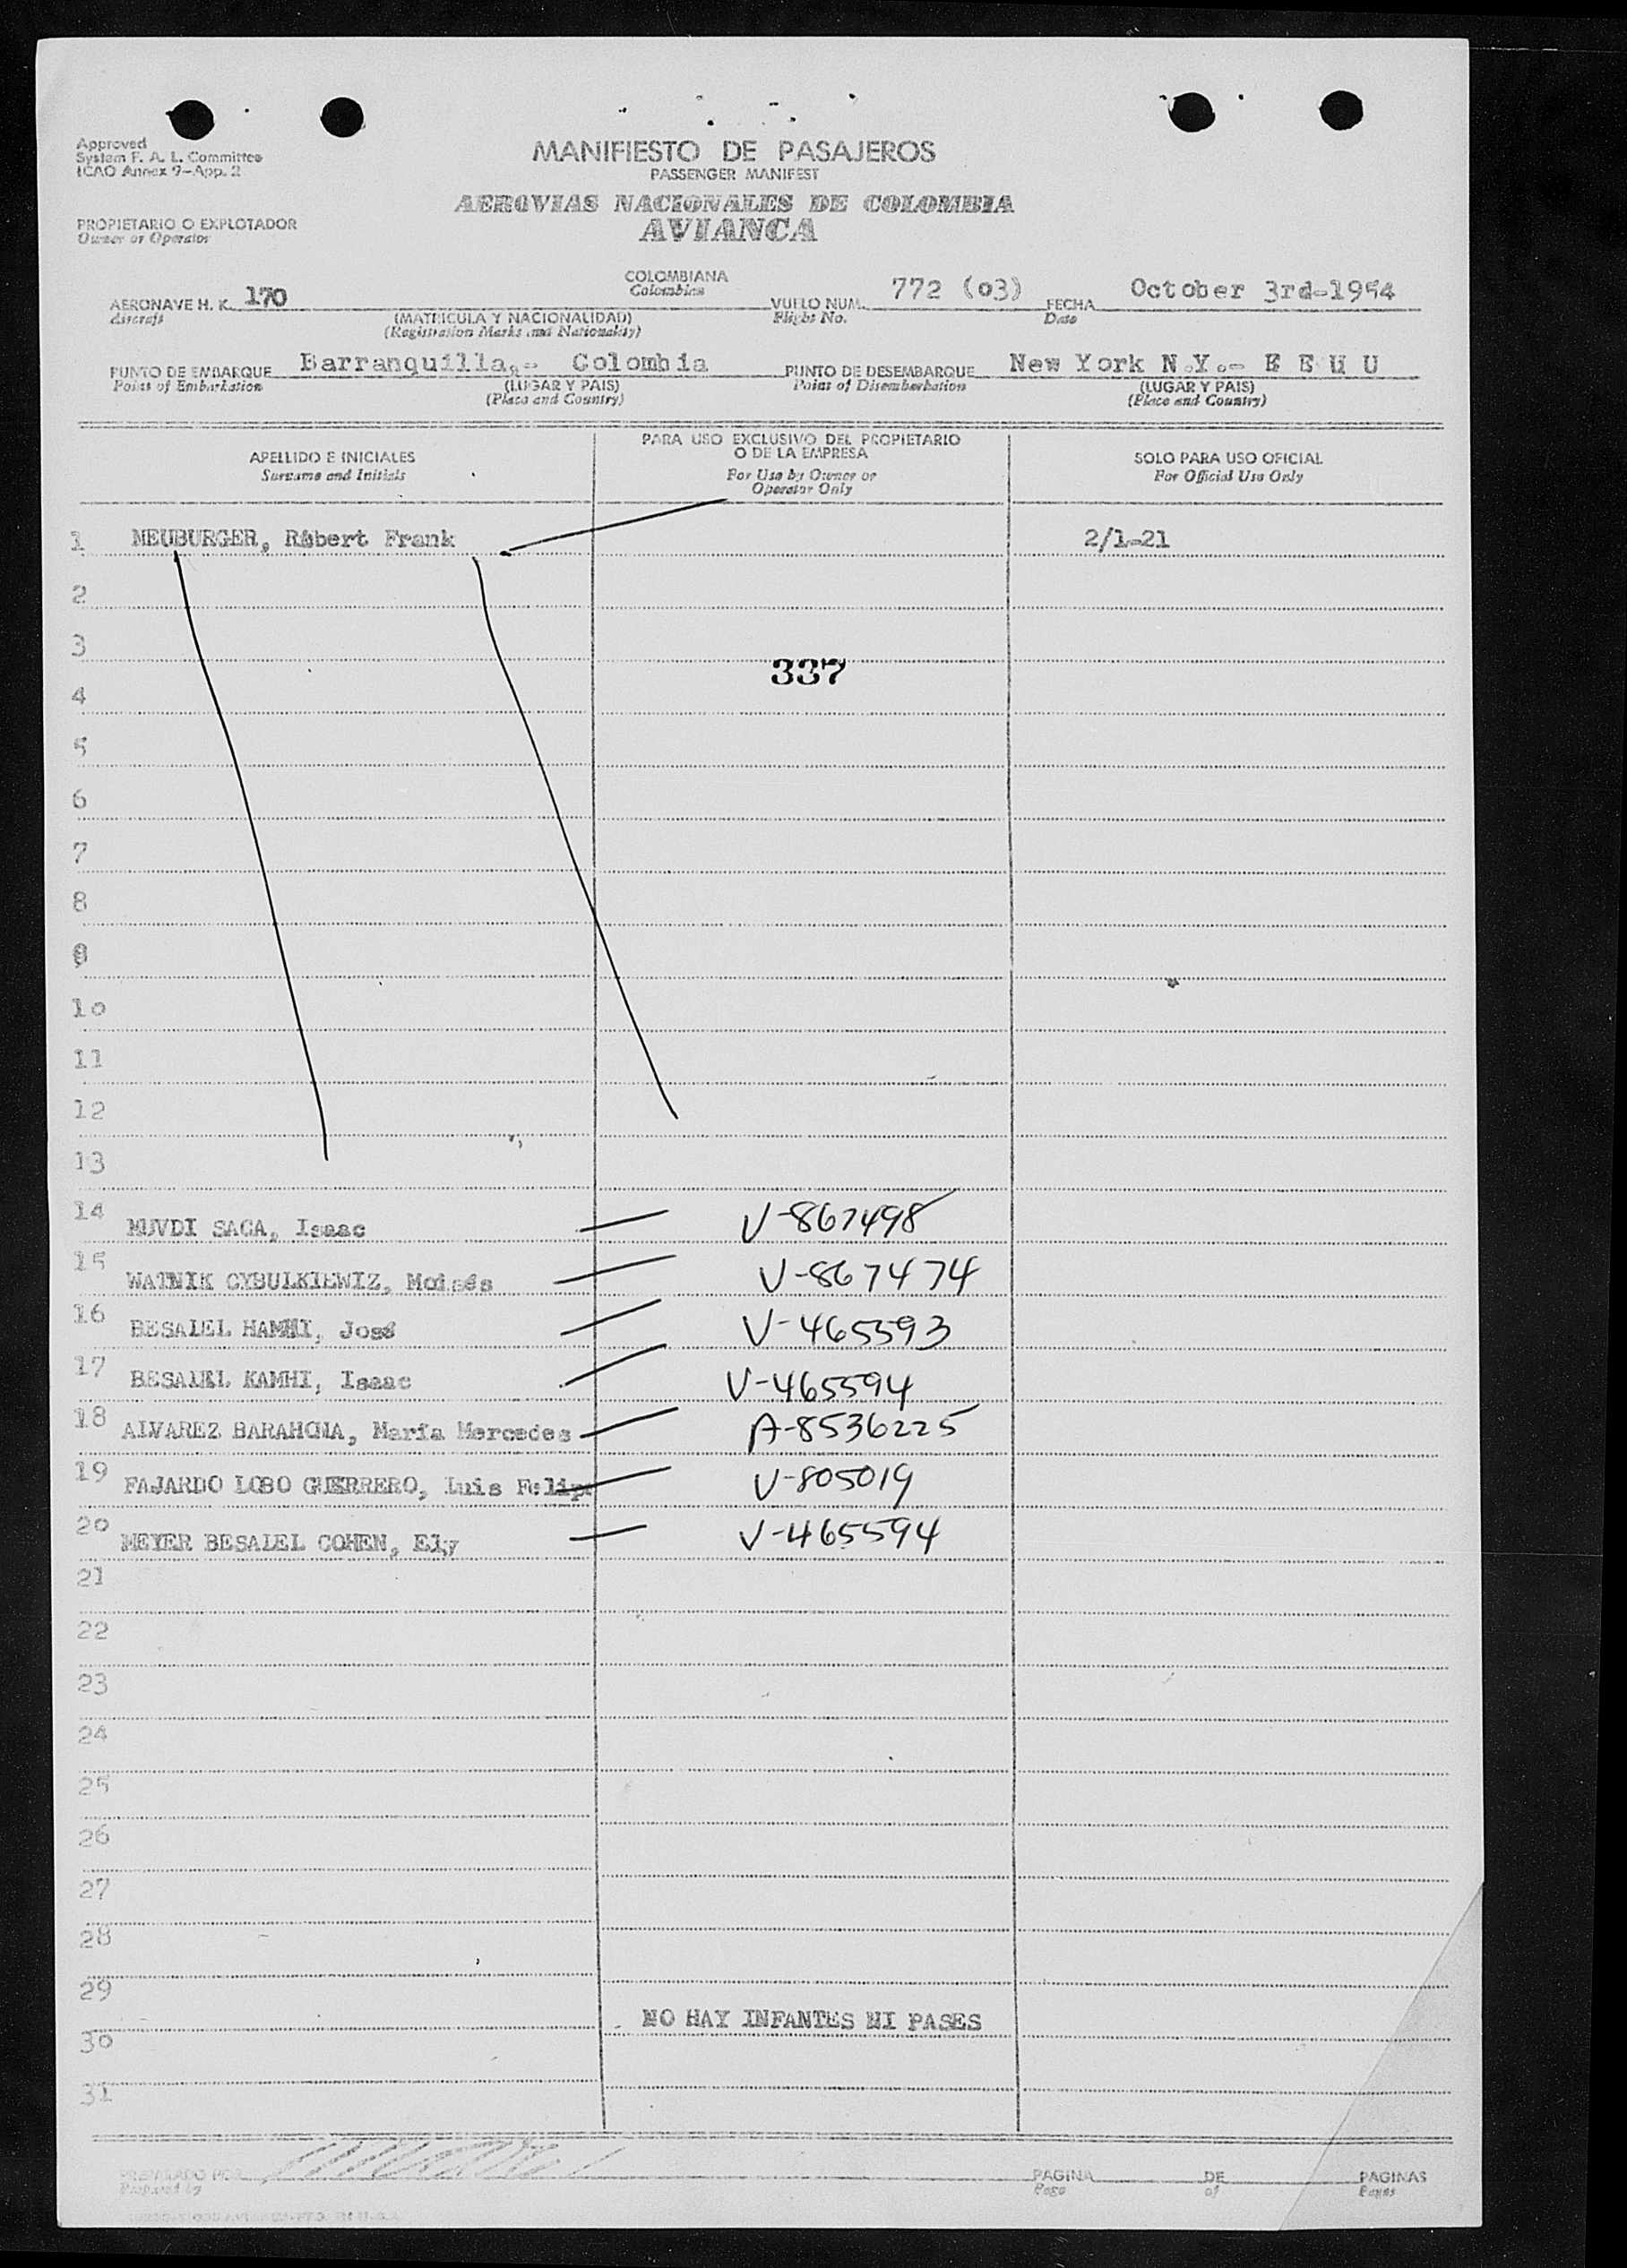 Approved
System F. A. L. Committee
ICAO Annex 9-App. 2
MANIFIESTO DE PASAJEROS
PASSENGER MANIFEST
AEROVIAS NACIONALES DE COLOMBIA
AVIANCA
PROPIETARIO O EXPLOTADOR
Owner or Operator
AERONAVE H. K. 170
Aircraft
COLOMBIANA
Colombian
(MATRICULA Y NACIONALIDAD)
(Registration Marks and Nationality)
VUELO NUM. 772 (03)
Flight No.
FECHA October 3rd-1954
Date
PUNTO DE EMBARQUE Barranquilla,- Colombia
Point of Embarkation
(LUGAR Y PAIS)
(Place and Country)
PUNTO DE DESEMBARQUE New York N.Y.- E E U U
Point of Disembarkation
(LUGAR Y PAIS)
(Place and Country)
APELLIDO E INICIALES
Surname and Initials
PARA USO EXCLUSIVO DEL PROPIETARIO
O DE LA EMPRESA
For Use by Owner or
Operator Only
SOLO PARA USO OFICIAL
For Official Use Only
1 NEUBURGER, Robert Frank 2/1-21
2
3
337
4
5
6
7
8
9
10
11
12
13
14 MUVDI SACA, Isaac V-867498
15 WATNIK CYBULKIEWIZ, Moisés V-867474
16 BESALEL HAMHI, José V-465593
17 BESALEL KAMHI, Isaac V-465594
18 ALVAREZ BARAHONA, María Mercedes A-8536225
19 FAJARDO LOBO GUERRERO, Luis Felipe V-805019
20 MEYER BESALEL COHEN, Ely V-465594
21
22
23
24
25
26
27
28
29
NO HAY INFANTES NI PASES
30
31
PREPARADO POR
Prepared by
PAGINA DE PAGINAS
Page of Pages